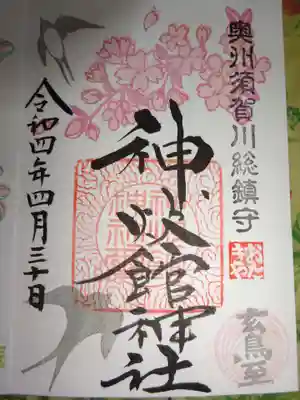 奥州須賀川総鎮守
神炊館神社
玄鳥至
令和四年四月三十日